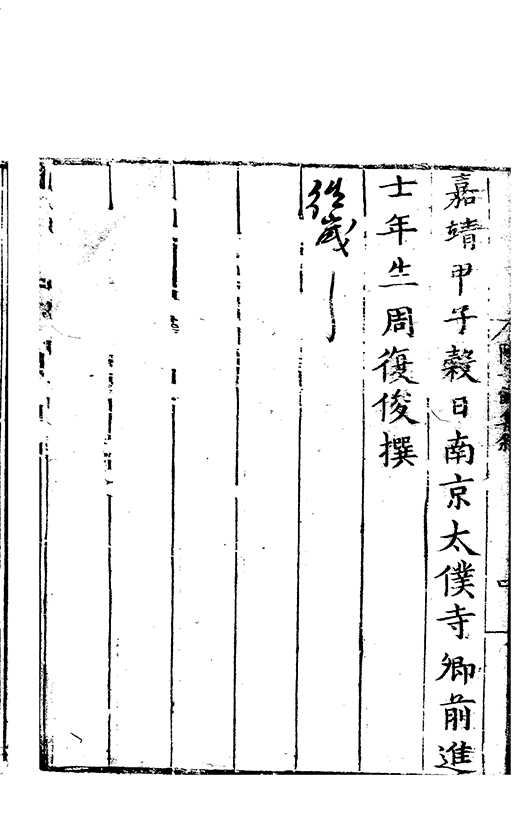 嘉靖甲子穀日南京太僕寺卿前進
士年生周復俊撰